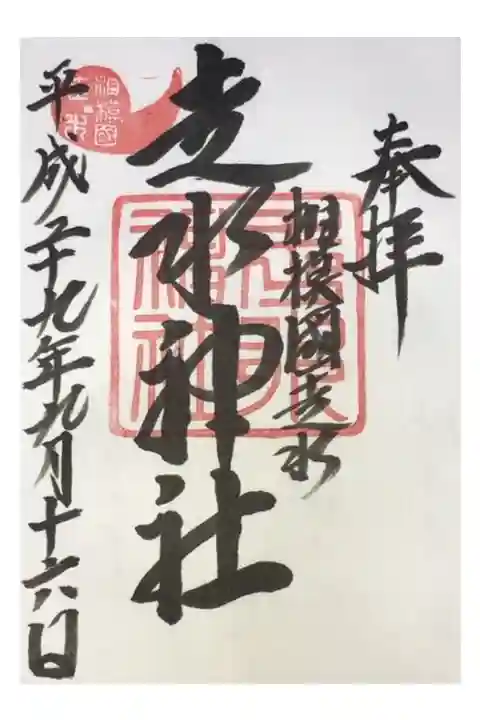 奉拝
相模國走水
走水神社
平成二十九年九月十六日
相模國
走水
走水
神社